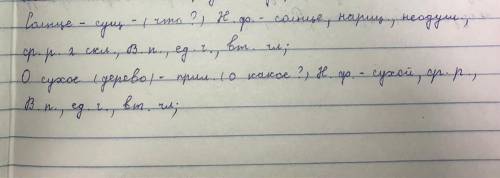 Солнце - сущ - (что?) Н. ф. - солнце, нариц., неодуш.,
ср. р. 2 скл., В. п., ед. ч., вт. чл;
О сухое (дерево) - прил. (о какое?), Н. ф. - сухой, ср. р.,
В. п., ед. ч., вт. чл;